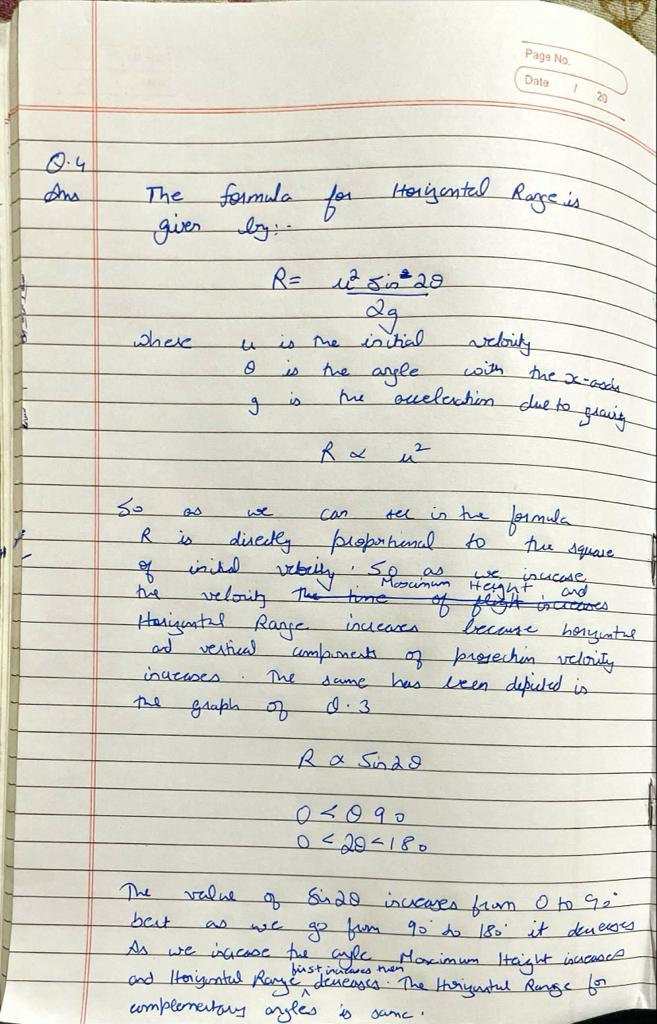 Page No.
Date / 20
Q.4
Ans The formula for Horizontal Range is
given by:-
R = u² Sin 2θ
2g
where u is the initial velocity
θ is the angle with the x-axis
g is the acceleration due to gravity
R ∝ u²
So as we can see in the formula
R is directly proportional to the square
of initial velocity. So as we increase
the velocity the time of flight increases Maximum Height and
Horizontal Range increases because horizontal
and vertical components of projection velocity
increases. The same has been depicted is
the graph of Q.3
R ∝ Sin2θ
0 < θ 90
0 < 2θ < 180
The value of Sin2θ increases from 0 to 90°
but as we go from 90° to 180° it decreases
As we increase the angle Maximum Height increases
and Horizontal Range first increases then decreases. The Horizontal Range for
complementary angles is same.